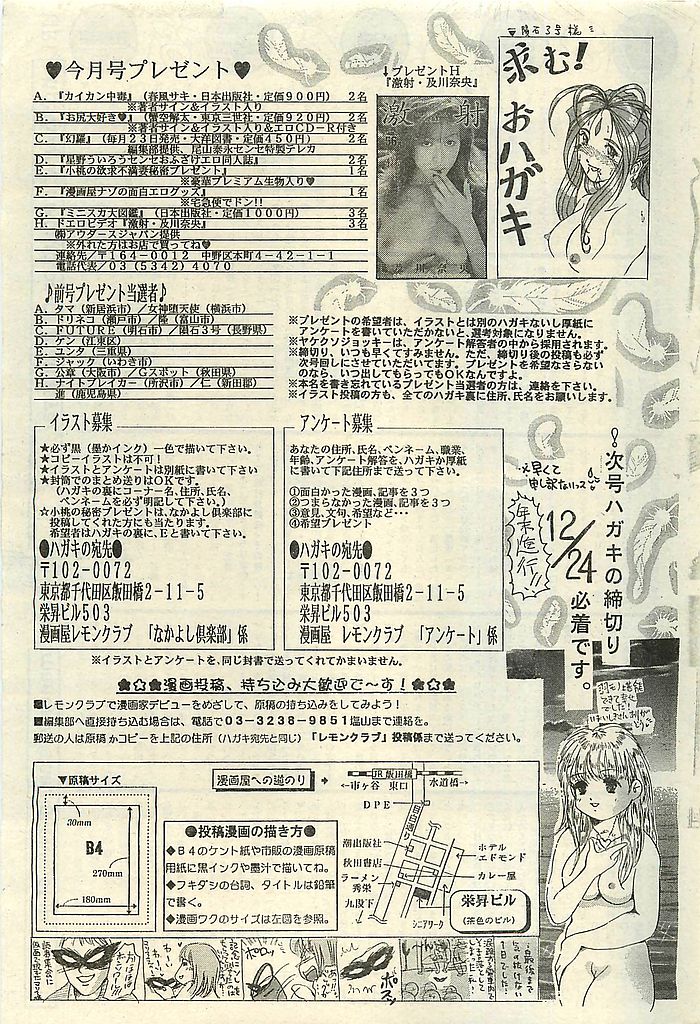 ♥今月号プレゼント♥
A.『カイカン中毒』(春風サキ・日本出版社・定価900円) 2名
※著者サイン&イラスト入り
B.『お尻大好き♥』(蟹空解太・東京三世社・定価920円) 2名
※著者サイン&イラスト入り&エロCD−R付き
C.『幻羅』(毎月23日発売・大洋図書・定価450円) 2名
編集部提供、尾山泰永センセ特製テレカ
D.『星野ういろうセンセおふざけエロ同人誌』 2名
E.『小桃の欲求不満妻秘密プレゼント』 1名
※豪華プレミアム生物入り♥
F.『漫画屋ナゾの面白エログッズ』 1名
※宅急便でドン!!
G.『ミニスカ大図鑑』(日本出版社・定価1000円) 3名
H.ドエロビデオ『激射・及川奈央』 3名
㈱アウダースジャパン提供
※外れた方はお店で買ってね♥
連絡先/〒164−0012 中野区本町4−42−1−1
電話代表/03(5342)4070
↓プレゼントH
『激射・及川奈央』
激射
及川奈央
隕石3号様
求む!
おハガキ
♪前号プレゼント当選者♪
A.タマ(新居浜市)/女神堕天使(横浜市)
B.ドリネコ(瀬戸市)/隆(富山市)
C.FUTURE(明石市)/隕石3号(長野県)
D.ケン(江東区)
E.ユンタ(三重県)
F.ジャック(いわき市)
G.公章(大阪市)/Gスポット(秋田県)
H.ナイトブレイカー(所沢市)/仁(新田郡)
進(鹿児島県)
※プレゼントの希望者は、イラストとは別のハガキないし厚紙に
アンケートを書いていただかないと、選考対象になりません。
※ヤケクソジョッキーは、アンケート解答者の中から採用されます。
※締切り、いつも早くてすみません。ただ、締切り後の投稿も必ず
次号回しにさせていただいてます。プレゼントを希望なさらない
のなら、いつ出してもらってもOKなんですよ。
※本名を書き忘れているプレゼント当選者の方は、連絡を下さい。
※イラスト投稿の方も、全てのハガキ裏に住所、氏名をお願いします。
イラスト募集
★必ず黒(墨かインク)一色で描いて下さい。
★コピーイラストは不可!
★イラストとアンケートは別紙に書いて下さい
★封筒でのまとめ送りはOKです。
(ハガキの裏にコーナー名、住所、氏名、
ペンネームを必ず明記して下さい。)
☆小桃の秘密プレゼントは、なかよし倶楽部に
投稿してくれた方にも当たります。
希望者はハガキの裏に、Eと書いて下さい。
●ハガキの宛先●
〒102-0072
東京都千代田区飯田橋2-11-5
栄昇ビル503
漫画屋レモンクラブ 「なかよし倶楽部」係
アンケート募集
あなたの住所、氏名、ペンネーム、職業、
年齢、アンケート解答を、ハガキか厚紙
に書いて下記住所まで送って下さい。
①面白かった漫画、記事を3つ
②つまらなかった漫画、記事を3つ
③意見、文句、希望など…
④希望プレゼント
●ハガキの宛先●
〒102-0072
東京都千代田区飯田橋2-11-5
栄昇ビル503
漫画屋 レモンクラブ 「アンケート」係
!次号ハガキの締切り
12/24必着です。
早くて
申し訳ないっス
年末進行!!
※イラストとアンケートを、同じ封書で送ってくれてかまいません。
★✩★漫画投稿、持ち込み大歓迎で〜す!★✩★
■レモンクラブで漫画家デビューをめざして、原稿の持ちこみをしてみよう!
■編集部へ直接持ち込む場合は、電話で03−3238−9851塩山まで連絡を。
郵送の人は原稿かコピーを上記の住所(ハガキ宛先と同じ)「レモンクラブ」投稿係まで送ってください。
▼原稿サイズ
30mm
B4
270mm
180mm
漫画屋への道のり
●投稿漫画の描き方●
◆B4のケント紙や市販の漫画原稿
用紙に黒インクや墨汁で描いてね。
◆フキダシの台詞、タイトルは鉛筆
で書く。
◆漫画ワクのサイズは左図を参照。
JR飯田橋
←市ヶ谷 東口 水道橋→
DPE
目白通り
潮出版社
秋田書店
ラーメン
秀栄
九段下
ホテル
エドモンド
カレー屋
栄昇ビル
(茶色のビル)
シニアワーク